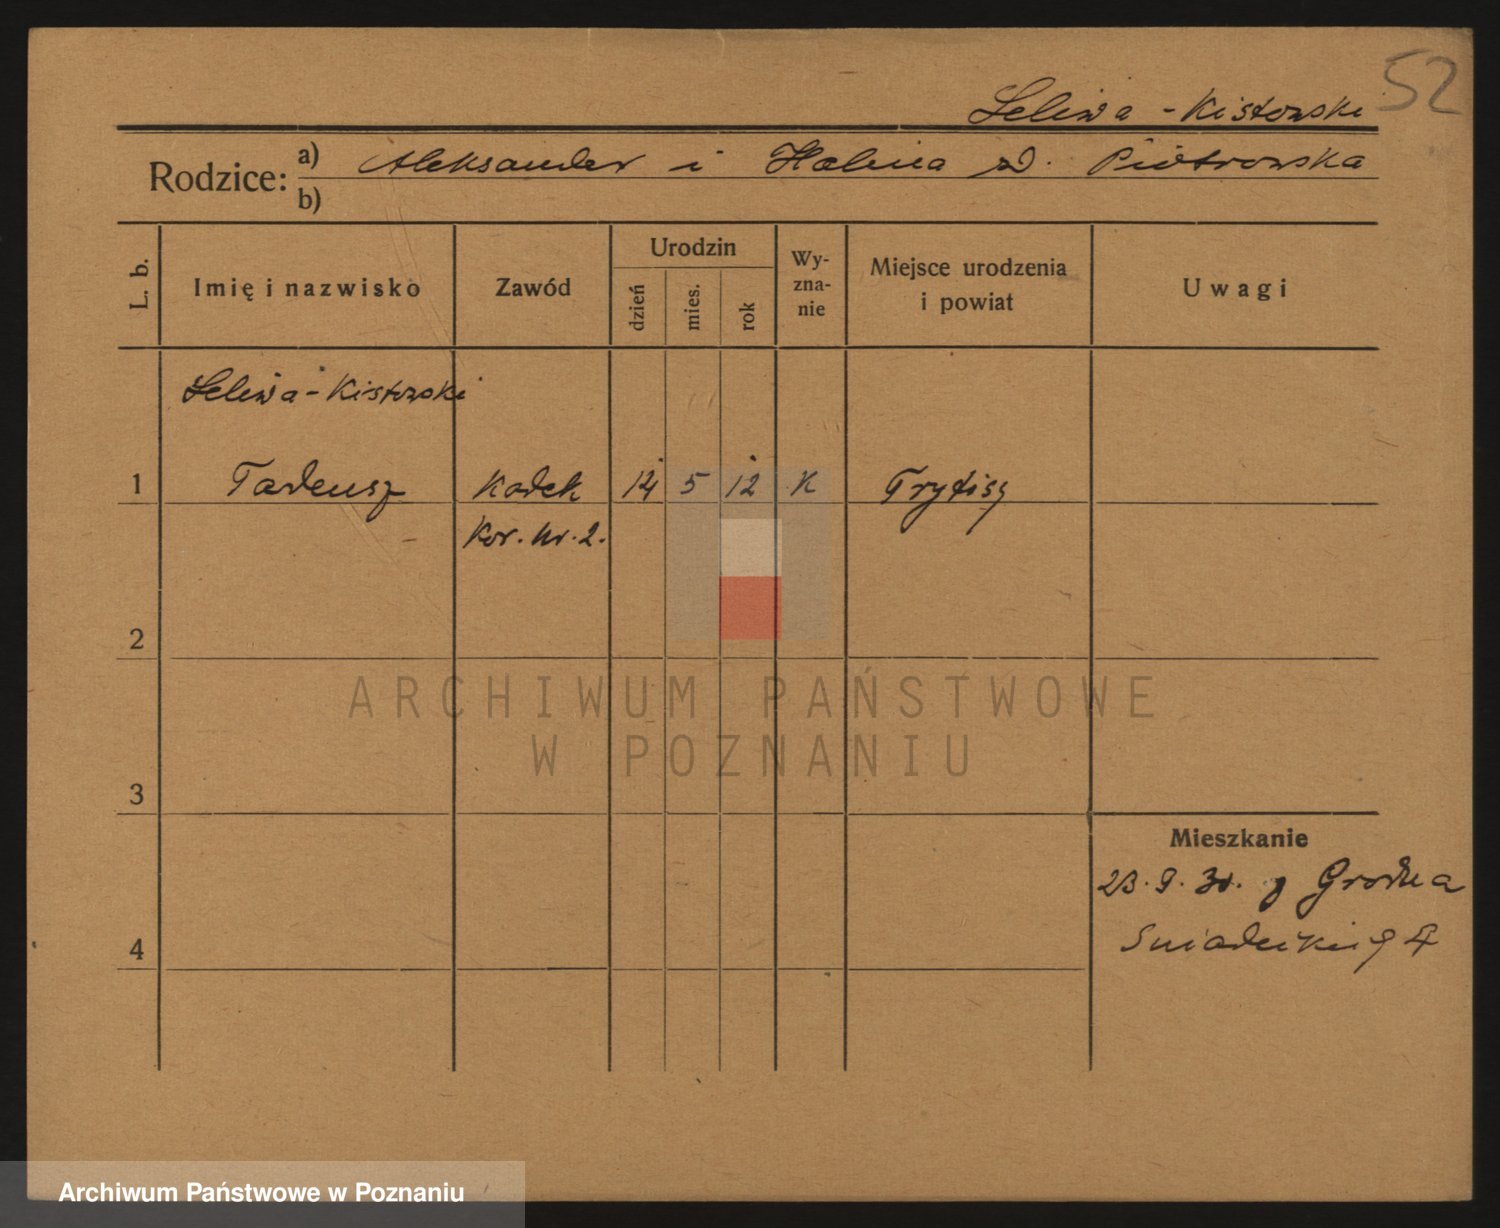 52
Leliwa - Kistowski
Rodzice: a) Aleksander i Halina z d. Piotrowska
b)
L. b. Imię i nazwisko Zawód Urodzin dzień mies. rok Wyznanie Miejsce urodzenia i powiat Uwagi
Leliwa-Kistowski
1 Tadeusz Kadek 14 5 12 K Trytisy
Kor. Nr. 2.
2
ARCHIWUM PAŃSTWOWE
W POZNANIU
3
Mieszkanie
23. 9. 30. z Grodna
4 Śniadeckich 4
Archiwum Państwowe w Poznaniu